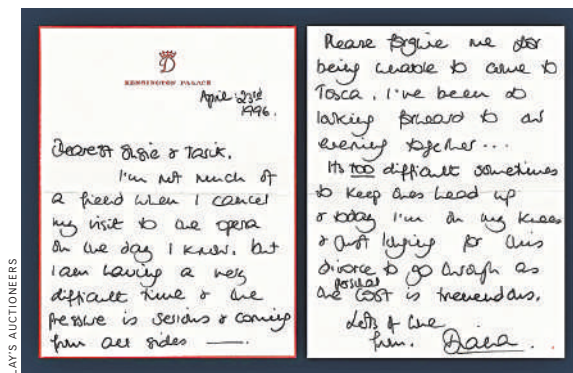 LAY'S AUCTIONEERS
D
KENSINGTON PALACE
April 23rd
1996.
Dearest Susie & Tarik,
I'm not much of
a friend when I cancel
my visit to the opera
on the day I know, but
I am having a very
difficult time & the
pressure is serious & coming
from all sides —.
Please forgive me for
being unable to come to
Tosca. I've been so
looking forward to our
evening together...
Its TOO difficult sometimes
to keep ones head up
& today I'm on my knees
& just longing for this
divorce to go through as
the possible cost is tremendous.
Lots of love
from. Diana.